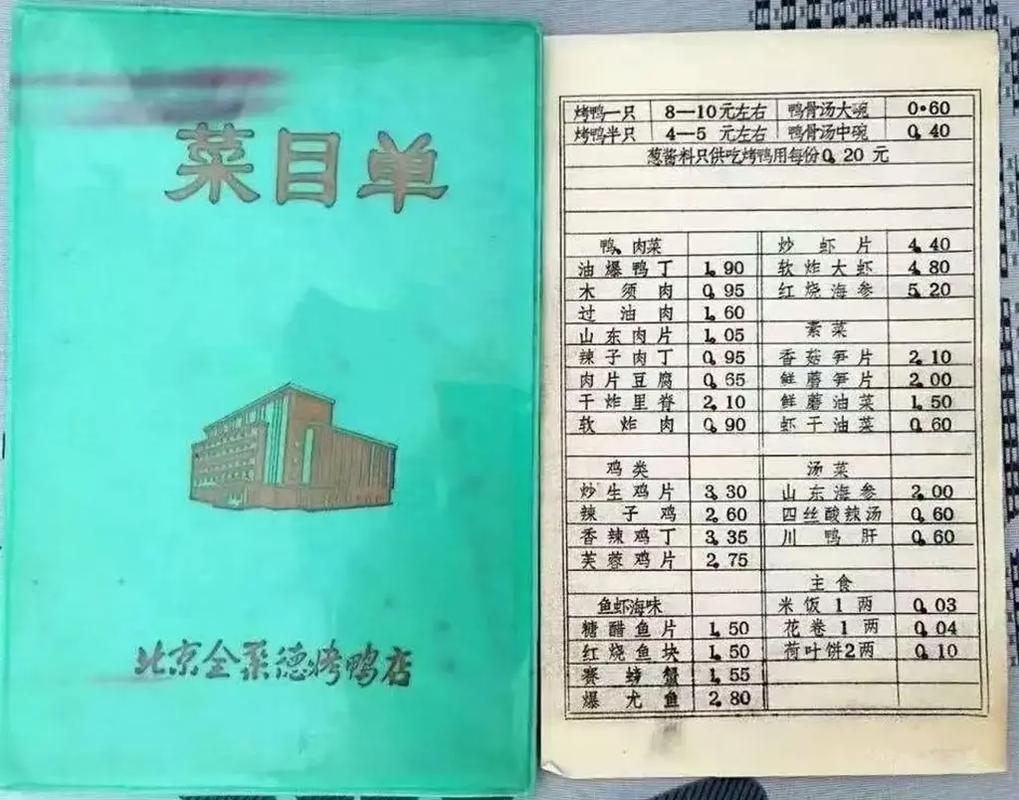 菜目单
北京全聚德烤鸭店
烤鸭一只 8—10元左右 鸭骨汤大碗 0.60
烤鸭半只 4—5 元左右 鸭骨汤中碗 0.40
葱酱料只供吃烤鸭用每份0.20 元
鸭、肉菜
油爆鸭丁 1.90
木须肉 0.95
过油肉 1.60
山东肉片 1.05
辣子肉丁 0.95
肉片豆腐 0.65
干炸里脊 2.10
软炸肉 0.90
鸡类
炒生鸡片 3.30
辣子鸡 2.60
香辣鸡丁 3.35
芙蓉鸡片 2.75
鱼虾海味
糖醋鱼片 1.50
红烧鱼块 1.50
赛螃蟹 1.55
爆尤鱼 2.80
炒虾片 4.40
软炸大虾 4.80
红烧海参 5.20
素菜
香菇笋片 2.10
鲜蘑笋片 2.00
鲜蘑油菜 1.50
虾干油菜 0.60
汤菜
山东海参 2.00
四丝酸辣汤 0.60
川鸭肝 0.60
主食
米饭1两 0.03
花卷1两 0.04
荷叶饼2两 0.10